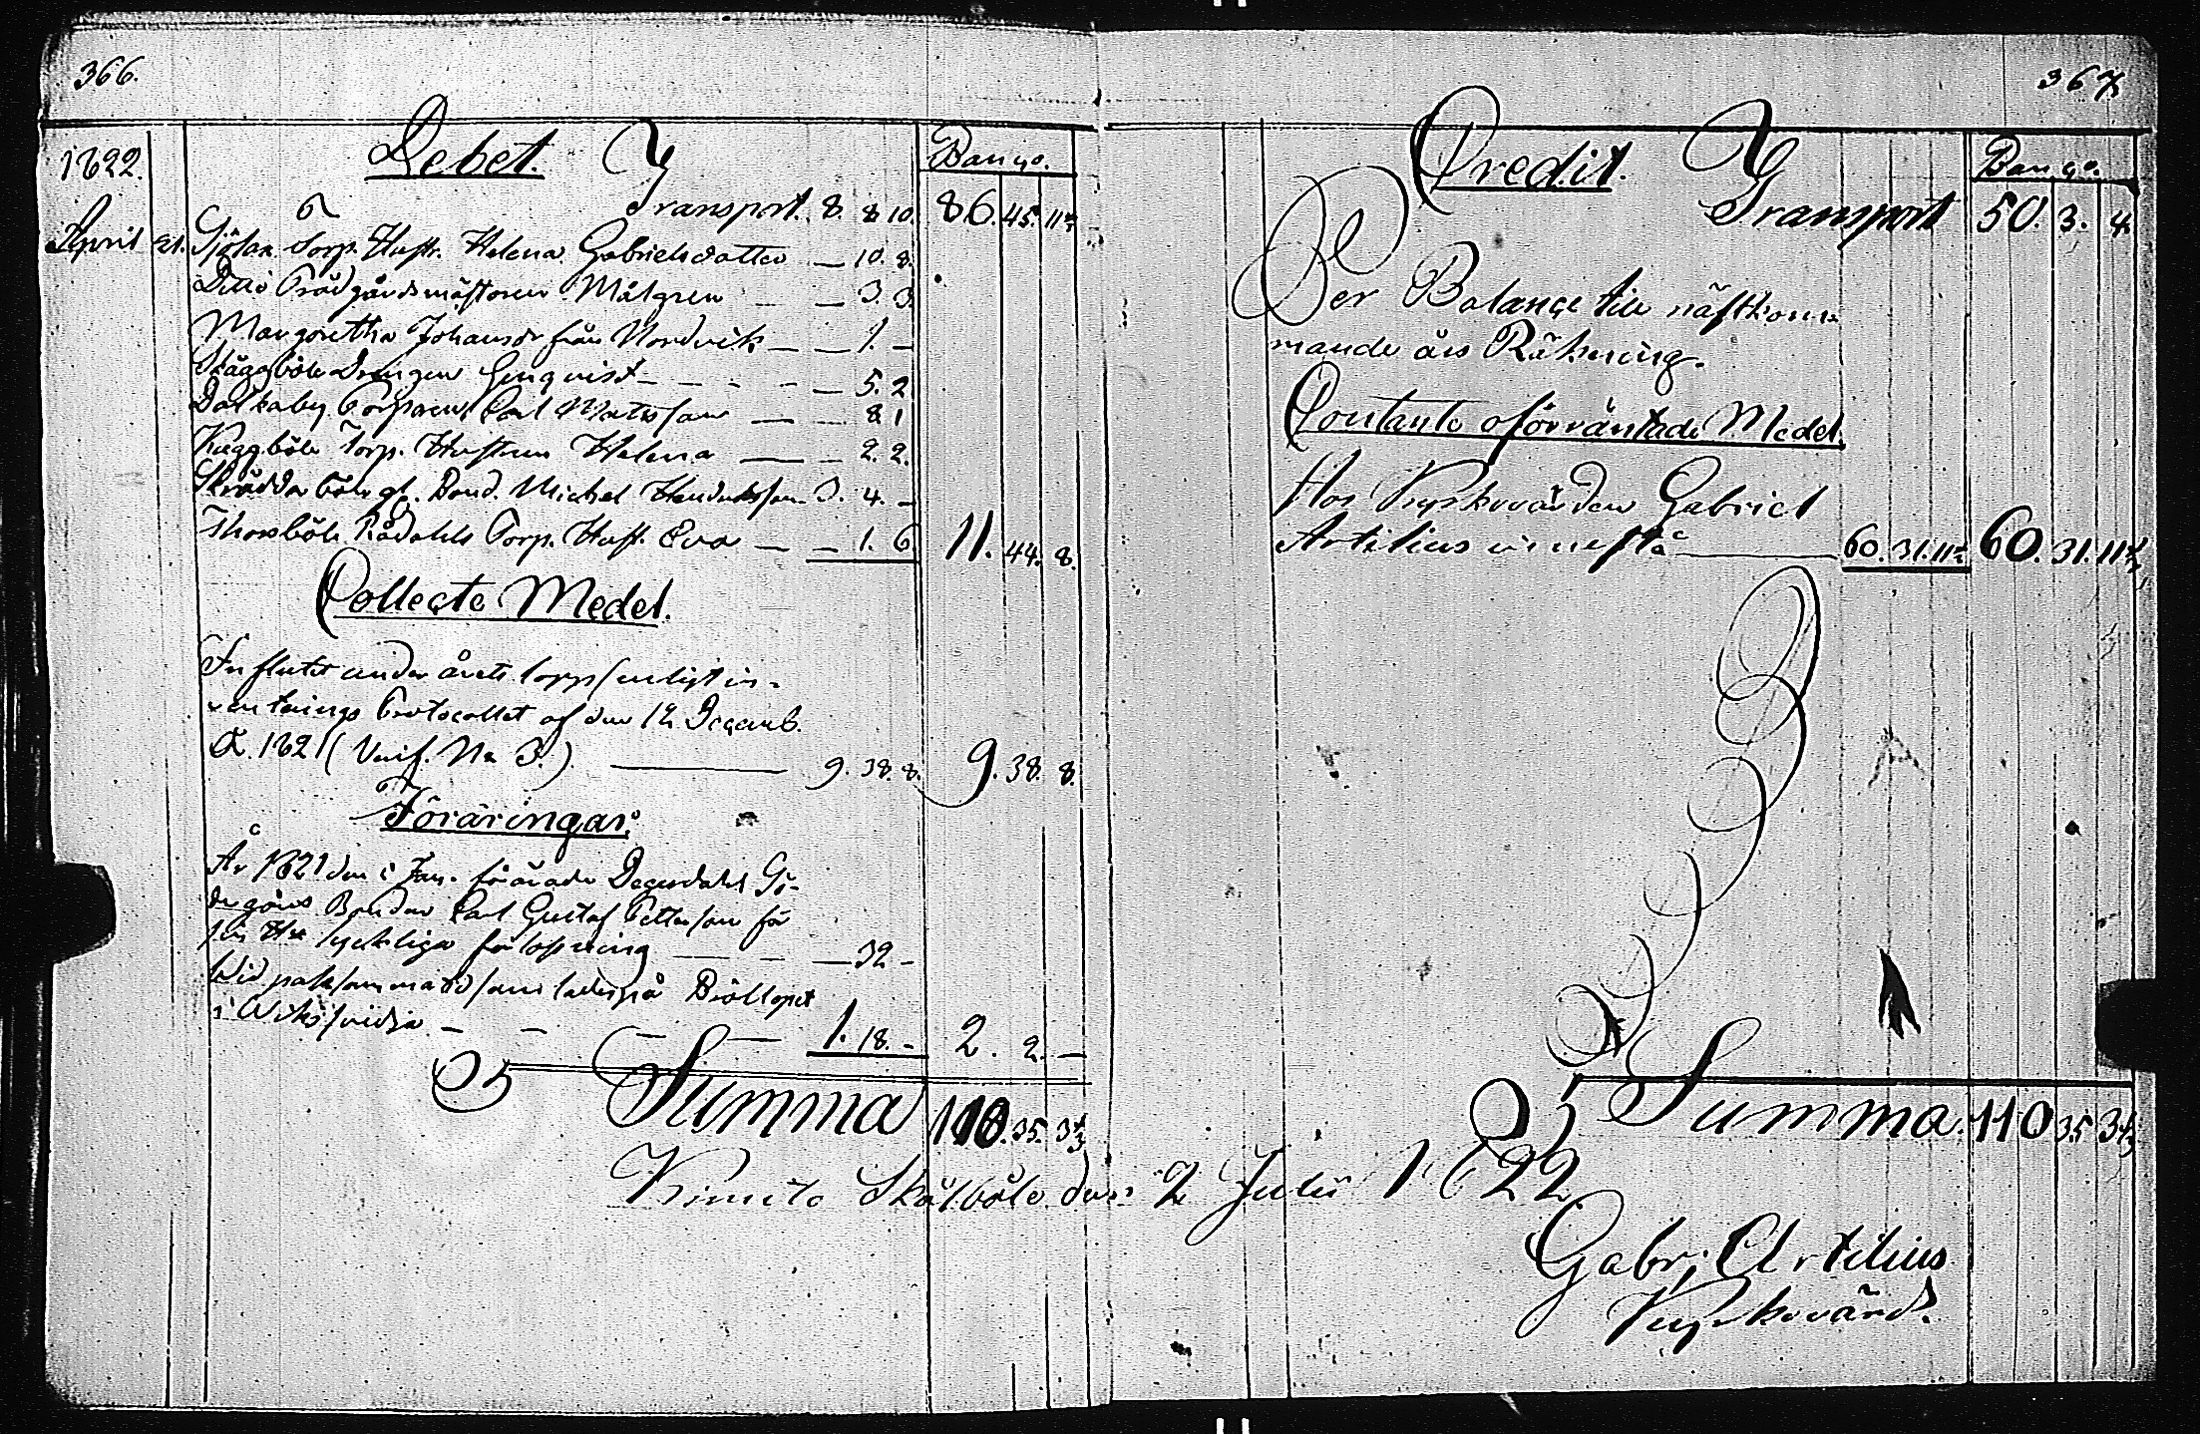 366.
1822.
Debet.
Banco.
Transport. 8. 8 10. 86. 45. 11
April 21. Sjölax Torp. Hustr. Helena Gabrielsdotter — 10. 8.
Ditto Trädgårdsmästaren Målgren — — 3. 3
Margaretha Johansdr från Nordvik — — 1. —
Skäggböle Drengen Genqvist — — — 5. 2
Dalkaby Torparen Carl Matsson — — 8 1
Torp. Hustrun Helena — — 2. 2.
Skräddarböle gl. Bond. Michel Hendricksson 3. 4. —
Torp. Hust. Eva — — 1. 6 11. 44. 8.
Collecte Medel.
Influtit under årets lopp enligt in-
venterings Protocollet af den 12 Decemb.
A. 1821 (Verif. No 3.) — 9. 38. 8. 9. 38. 8.
Föräringar.
År 1821 den i Jan. förärade
Bonden Carl Gustaf Pettersson för
sin lyckliga förlossning — — — 32 —
Wid
i — — — — 1. 18. — 2. 2. —
Summa 110. 35. 3
Kimito Skålböle den 2 Julii 1822
367
Credit.
Banco.
Transport 50. 3. 4.
Per Balance till nästkom-
mande års Räkning.
Contante oförväntade Medel.
Hos Kyrkovärden Gabriel
Artelius innestå — 60. 31. 11 60. 31. 11
Summa. 110 35 3
Gabr. Artelius
Kyrkovärd.